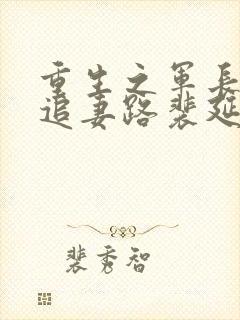 重生之军长
追妻路裴延
裴秀智